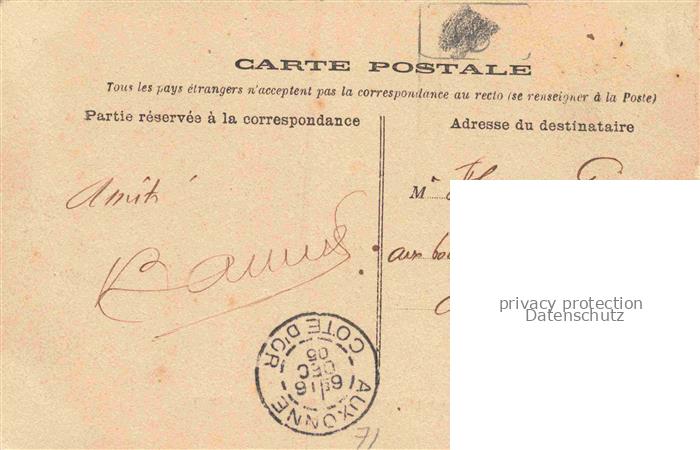 CARTE POSTALE
Tous les pays étrangers n'acceptent pas la correspondance au recto (se renseigner à la Poste)
Partie réservée à la correspondance
Adresse du destinataire
Amitié
M
aux
privacy protection
Datenschutz
AUXONNE
COTE D'OR
6 16
DEC
05
71